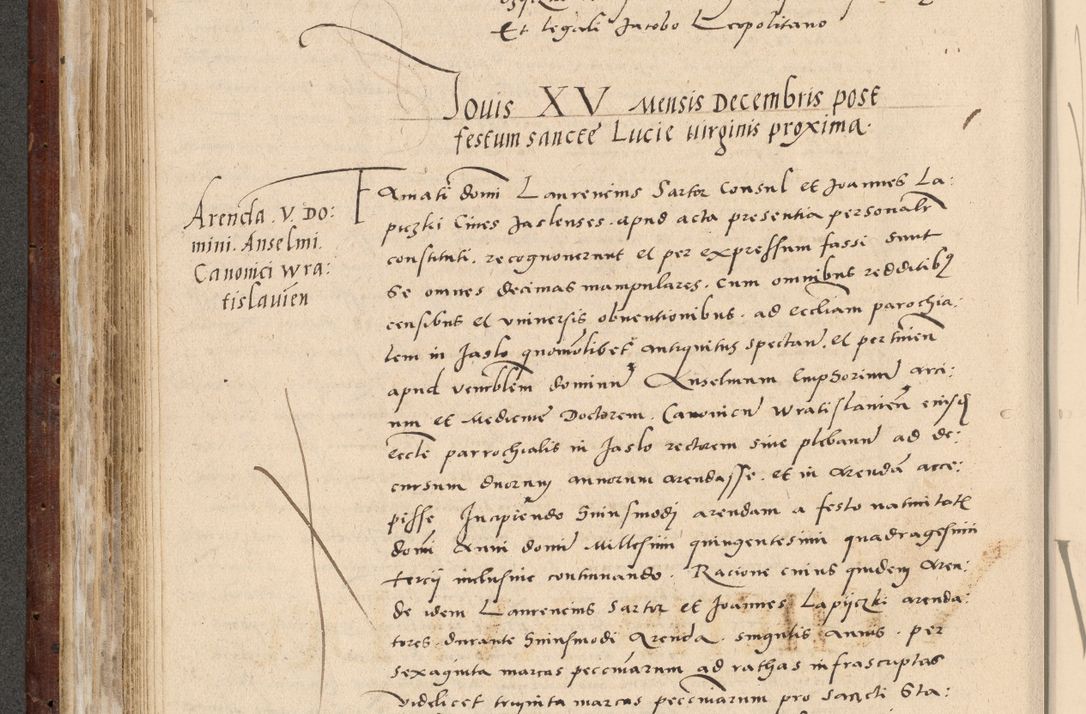 Et legali Jacobo Leopolitano
Jouis XV Mensis Decembris post
festum sancte Lucie virginis proxima.
Arenda . V. Do:
mini. Anselmi.
Canonici Wra:
tislavien
Famati domi Laurencius Sartor Consul et Joannes La:
piczki Ciues Jaslenses . apud acta presentia personalr
constituti . recognouerunt et per expressum fassi sunt
Se omnes decimas manipulares . cum omnibus redditibus
censibus et vniuersis obuentionibus . ad eccliam parochia:
lem in Jaslo quomolibet antiquitus spectan . et pertinen
apud venrblem dominu Anselmum Emphorinu arci:
um et Medicine Doctorem . Canonicu Wratislauien eiusd
eccle parrochialis in Jaslo rectorem siue plebanu ad de:
cursum duorum annorum arendasse . et in arenda acce:
pisse Incipiendo huiusmodj arendam a festo natiuitatis
domi Anni domi Millesimi quingentesimi quadragesimi
tercij inclusiue continuando . Racione cuius quidem Aren:
de idem Laurencius Sartor et Joannes Lapijczki arenda:
tores . durante huiusmodi Arenda . singulis annis . per
sexaginta marcas pecuniarum ad rathas infrascriptas
videlicet triginta marcas pecuniarum pro Sancti Sta: